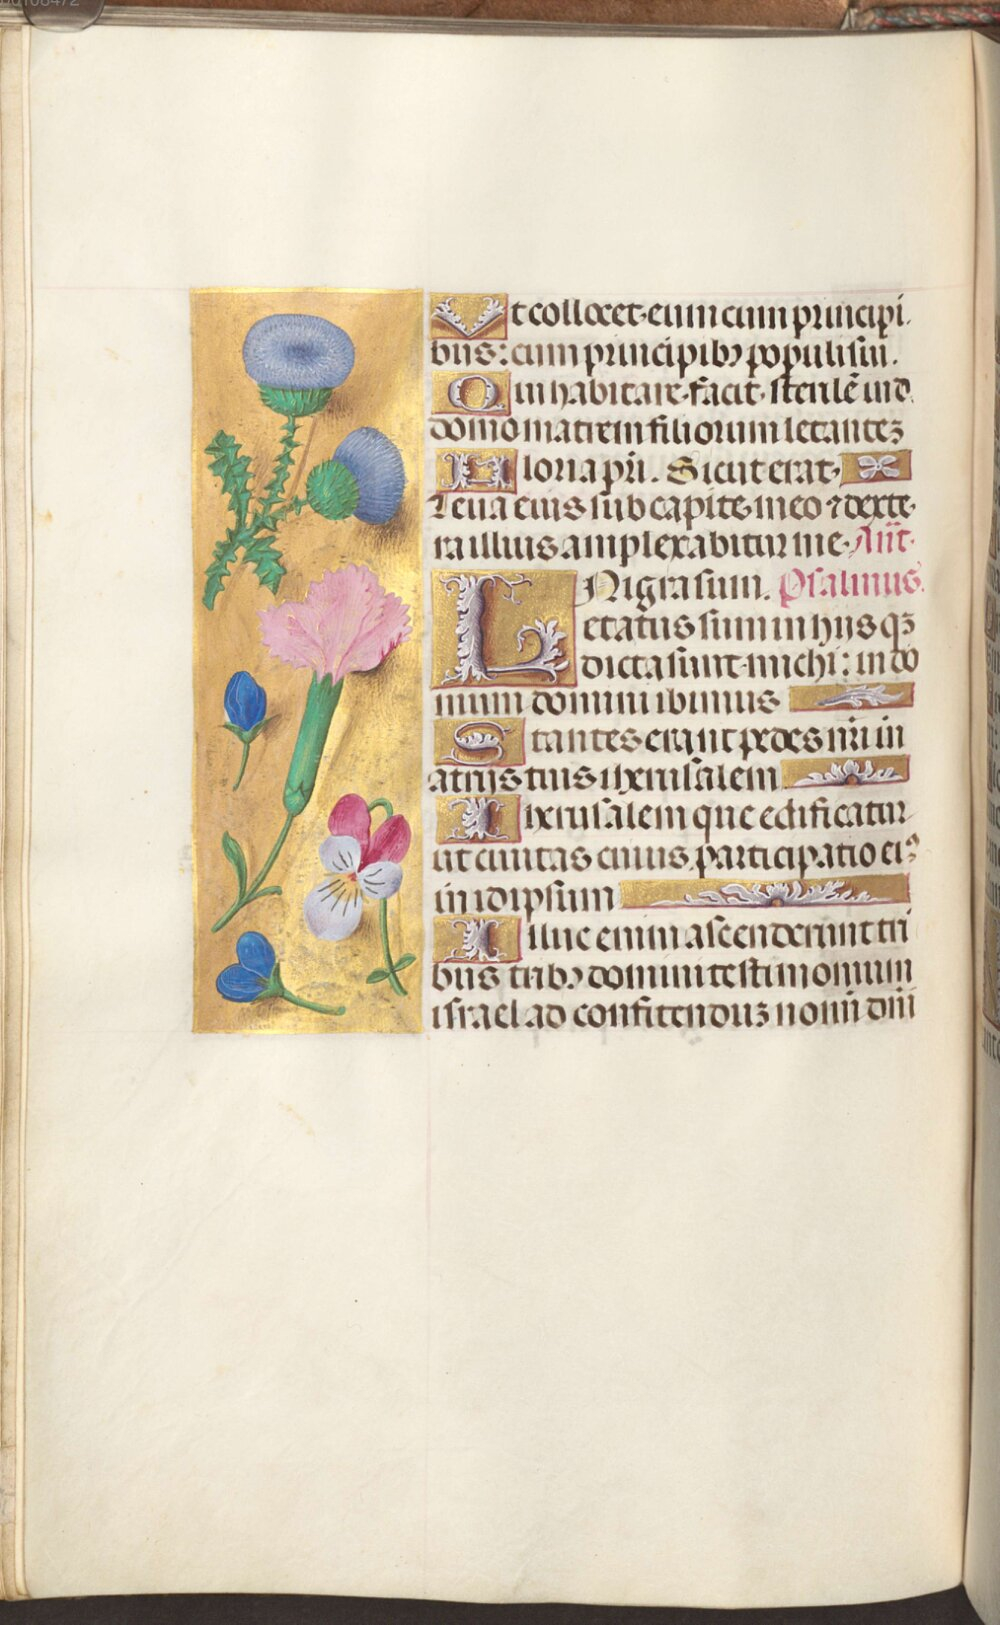 Vt collocet eum cum principi
bus: cum principibꝫ populi sui.
Qui inhabitare facit sterilē in d
domo matrem filiorum letantez
Gloria pri. Sicut erat.
Leua eius sub capite meo ⁊ dexte
ra illius amplexabitur me. Añt.
Nigra sum. Psalmus.
Letatus sum in hijs qꝫ
dicta sunt michi: in do
mum domini ibimus
Stantes erant pedes nr̄i in
atrijs tuis iherusalem
Iherusalem que edificatur
ut ciuitas cuius participatio eiꝰ
in idipsum
Illuc enim ascenderunt tri
bus tribꝫ domini testimonium
israel ad confitenduz nomī dn̄i